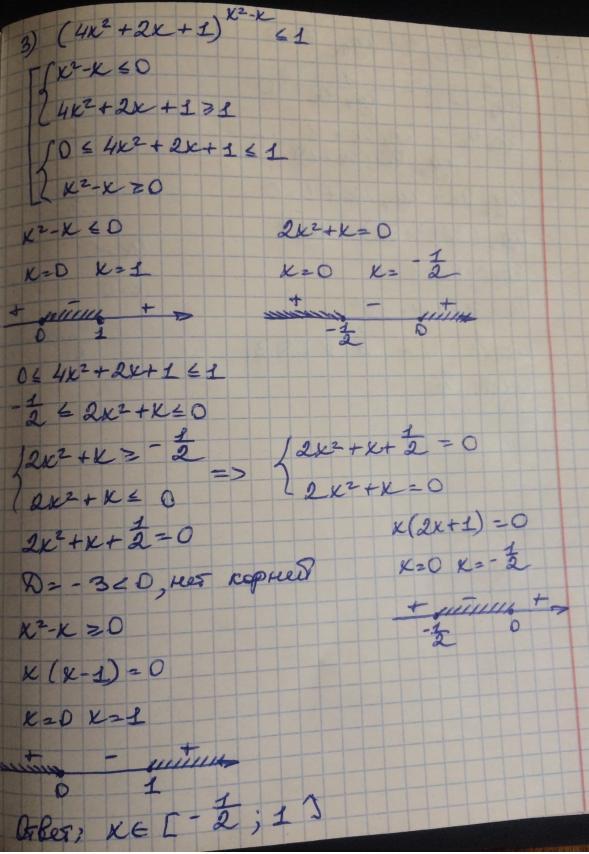 3) (4x² + 2x + 1)^(x²-x) ≤ 1
x² - x ≤ 0
4x² + 2x + 1 ≥ 1
0 ≤ 4x² + 2x + 1 ≤ 1
x² - x ≥ 0
x² - x ≤ 0
x=0 x=1
+ - +
0 1
2x² + x = 0
x=0 x= -1/2
+ - +
-1/2 0
0 ≤ 4x² + 2x + 1 ≤ 1
-1/2 ≤ 2x² + x ≤ 0
2x² + x ≥ -1/2 => 2x² + x + 1/2 = 0
2x² + x ≤ 0 2x² + x = 0
2x² + x + 1/2 = 0
D = -3 < 0, нет корней
x(2x+1) = 0
x=0 x= -1/2
+ - +
-1/2 0
x² - x ≥ 0
x(x-1) = 0
x=0 x=1
+ - +
0 1
Ответ: x ∈ [-1/2; 1]